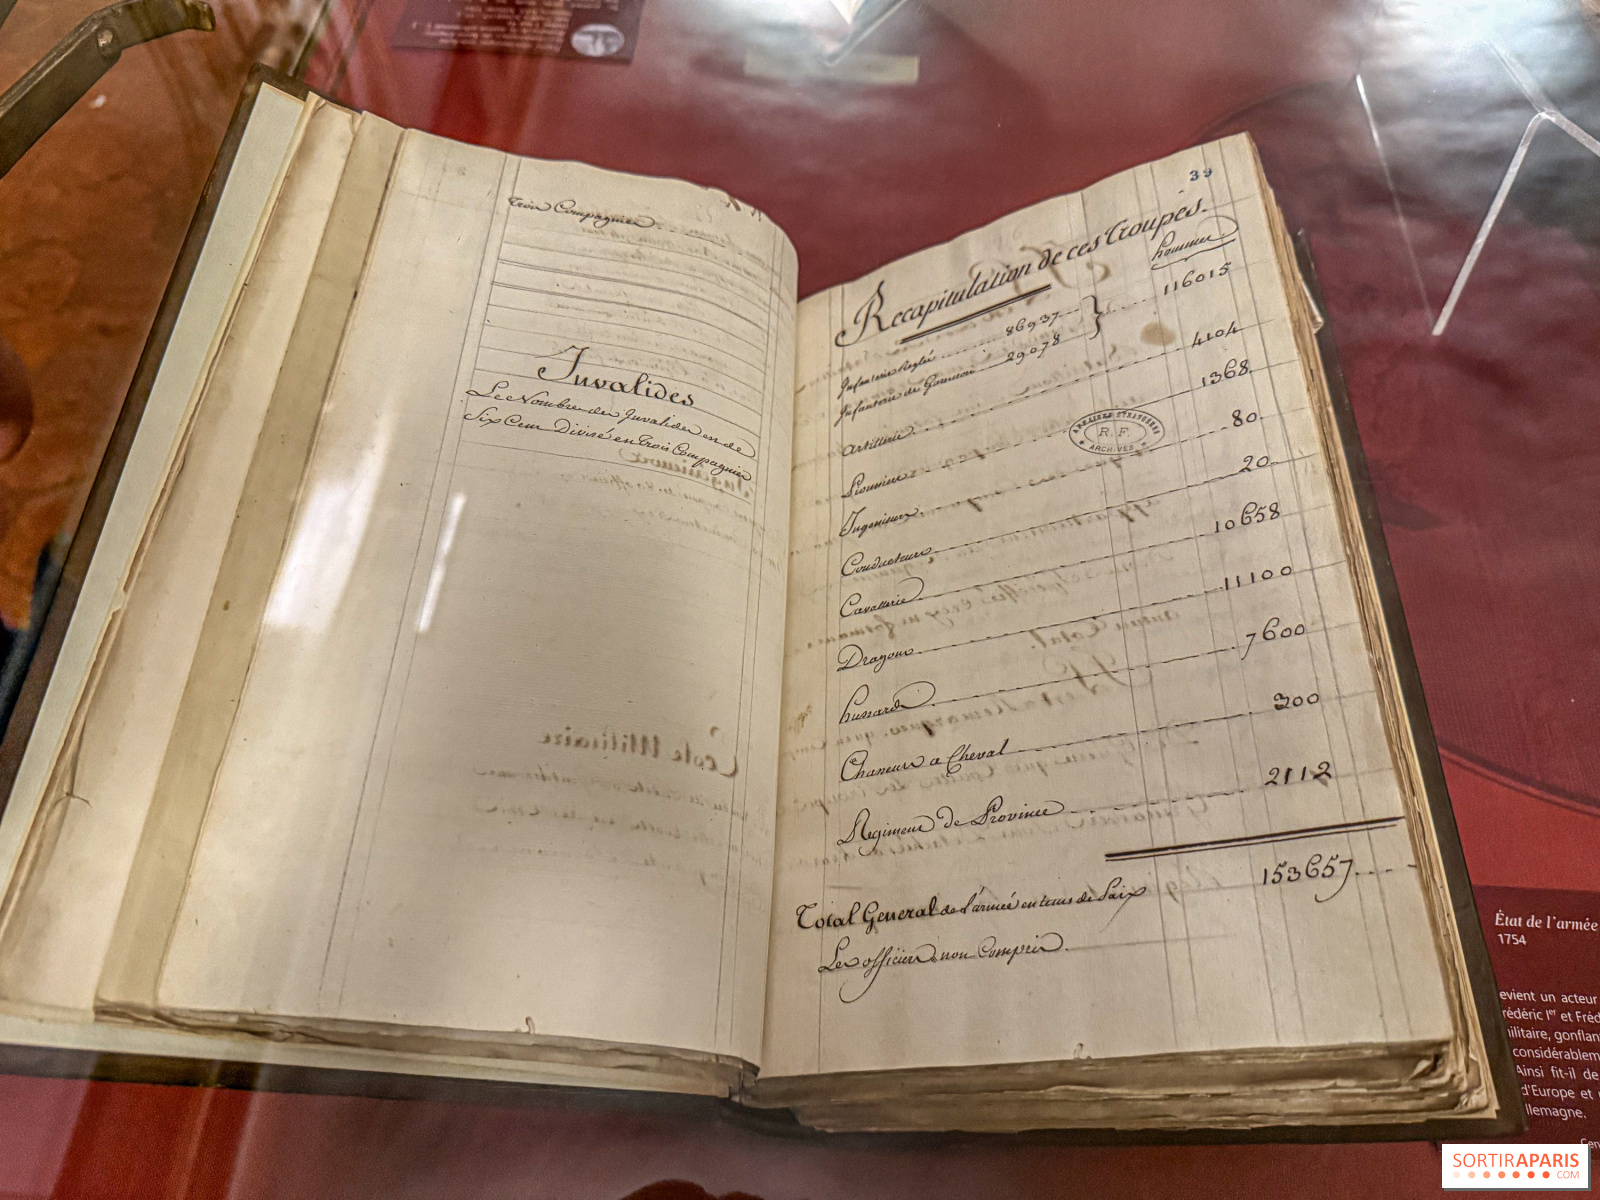 Trois Compagnies
Invalides
Le Nombre des Invalides est de
Six Cent Divisé en Trois Compagnies
39
Recapitulation de ces Troupes.
hommes
Infanterie Reglé 86937
116015
Infanterie de Garnison 29078
Artillerie 4104
Pionniers 1368.
Ingenieurs 80.
Conducteurs 20.
Cavallerie 10658
Dragons 11100
hussards 7600
Chasseurs a Cheval 300
Regiment de Province 2112
Total General de l'armée en tems de Paix 153657
Les officiers non Compris.
AFFAIRES ETRANGERES
R.F.
ARCHIVES
Ecole Militaire
État de l'armée
1754
evient un acteur
rédéric Iᵉʳ et Fréd
ilitaire, gonflan
considérablem
Ainsi fit-il de
d'Europe et
llemagne.
Cen
SORTIRAPARIS
.COM